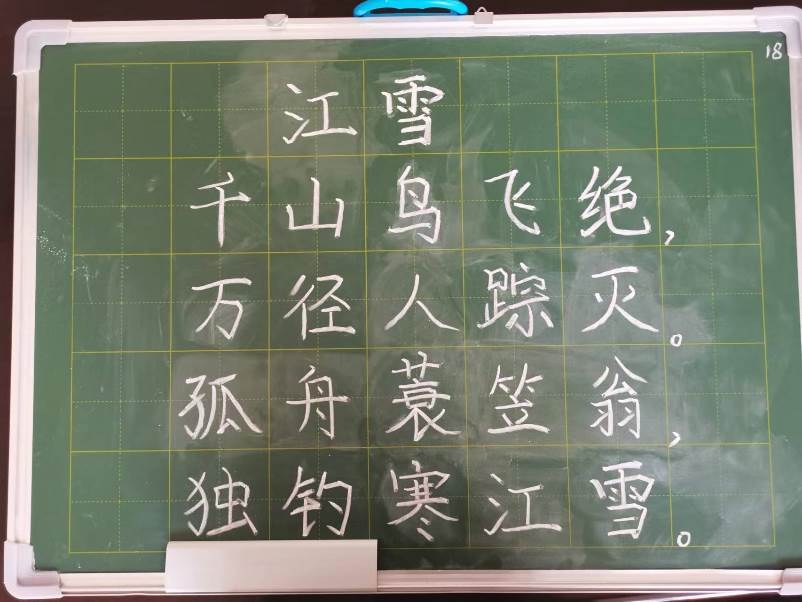 18
江雪
千山鸟飞绝，
万径人踪灭。
孤舟蓑笠翁，
独钓寒江雪。